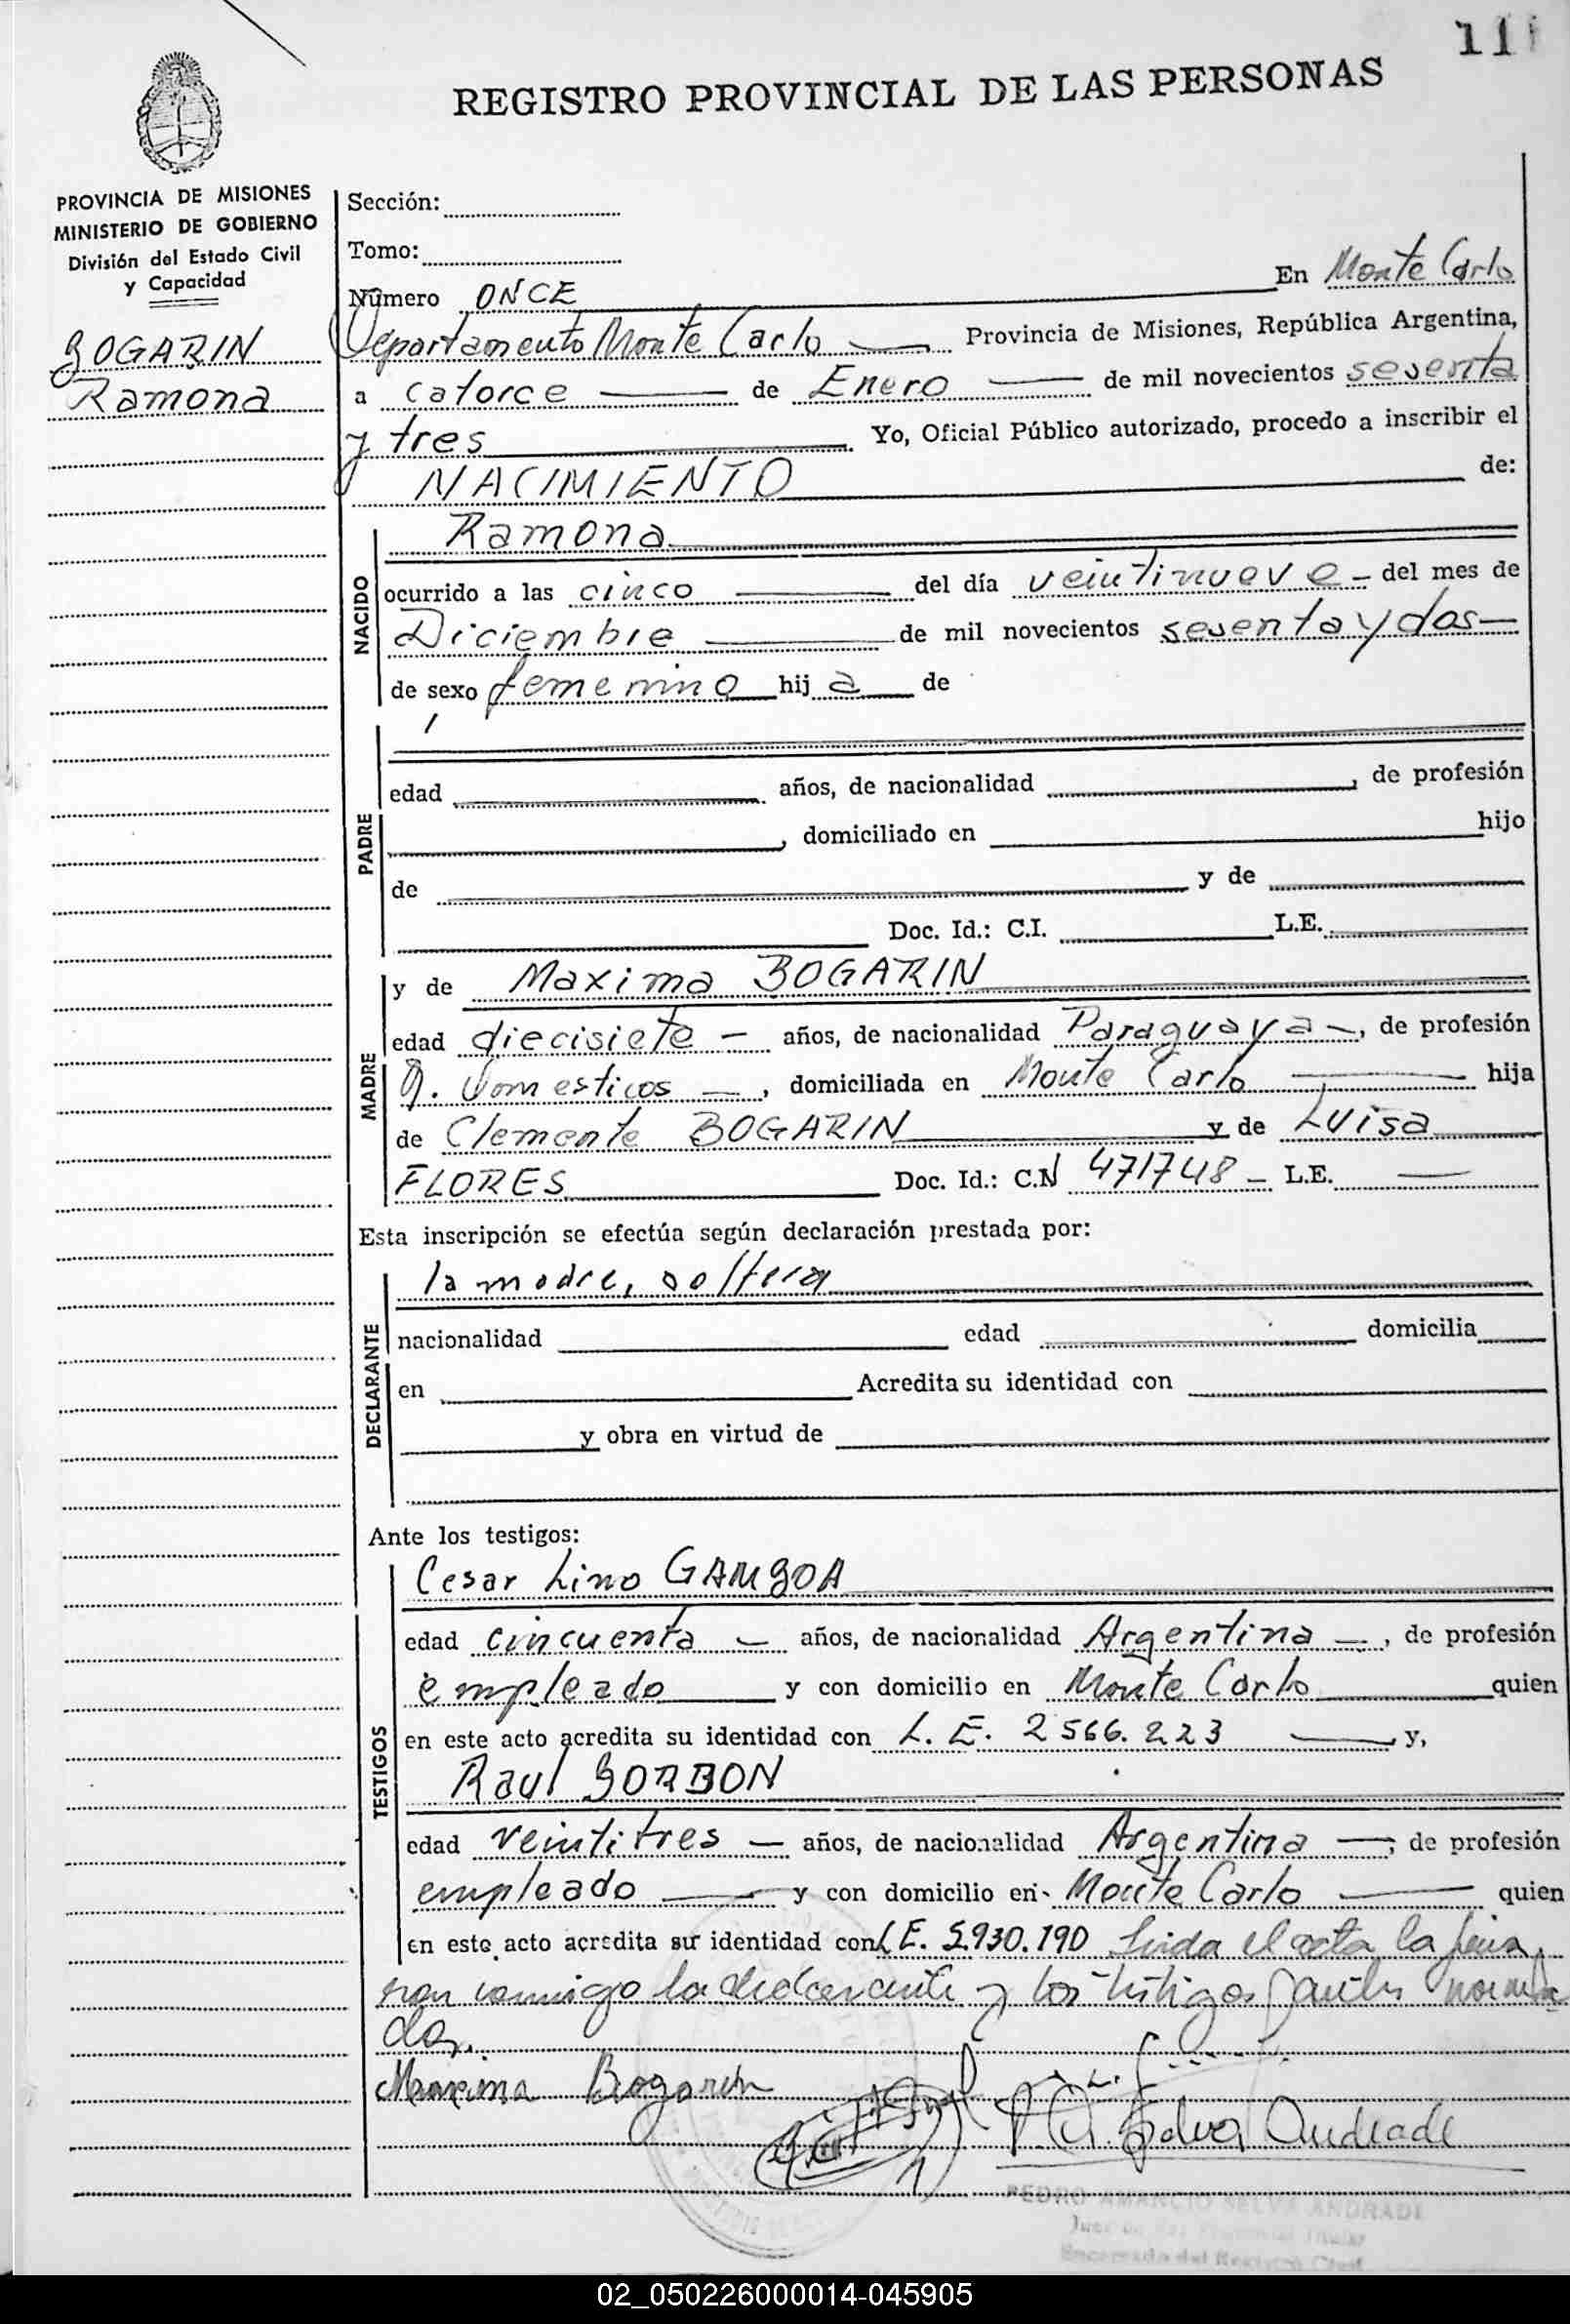 11
REGISTRO PROVINCIAL DE LAS PERSONAS
PROVINCIA DE MISIONES
MINISTERIO DE GOBIERNO
División del Estado Civil
y Capacidad
BOGARIN
Ramona
Sección:
Tomo:
Número ONCE En Monte Carlo
Departamento Monte Carlo Provincia de Misiones, República Argentina,
a catorce de Enero de mil novecientos setenta
y tres Yo, Oficial Público autorizado, procedo a inscribir el
NACIMIENTO de:
NACIDO
Ramona
ocurrido a las cinco del día veintinueve del mes de
Diciembre de mil novecientos setenta y dos
de sexo femenino hija de
PADRE
edad años, de nacionalidad , de profesión
, domiciliado en hijo
de y de
Doc. Id.: C.I. L.E.
MADRE
y de Maxima BOGARIN
edad diecisiete años, de nacionalidad Paraguaya, de profesión
Q. Domesticos, domiciliada en Monte Carlo hija
de Clemente BOGARIN y de Luisa
FLORES Doc. Id.: C.N 471748 L.E.
Esta inscripción se efectúa según declaración prestada por:
DECLARANTE
la madre, soltera
nacionalidad edad domicilia
en Acredita su identidad con
y obra en virtud de
Ante los testigos:
TESTIGOS
Cesar Lino GAMBOA
edad cincuenta años, de nacionalidad Argentina, de profesión
empleado y con domicilio en Monte Carlo quien
en este acto acredita su identidad con L.E. 2566.223 y,
Raul BORBON
edad veintitres años, de nacionalidad Argentina, de profesión
empleado y con domicilio en Monte Carlo quien
en este acto acredita su identidad con L.E. 5.930.190 Leida el acta la firma
ron conmigo la declarante y los testigos antes nombra
dos.
Maxima Bogarin
P. A. Selva Andrade
PEDRO AMANCIO SELVA ANDRADE
Juez de Paz Titular
Encargado del Registro Civil
02_050226000014-045905